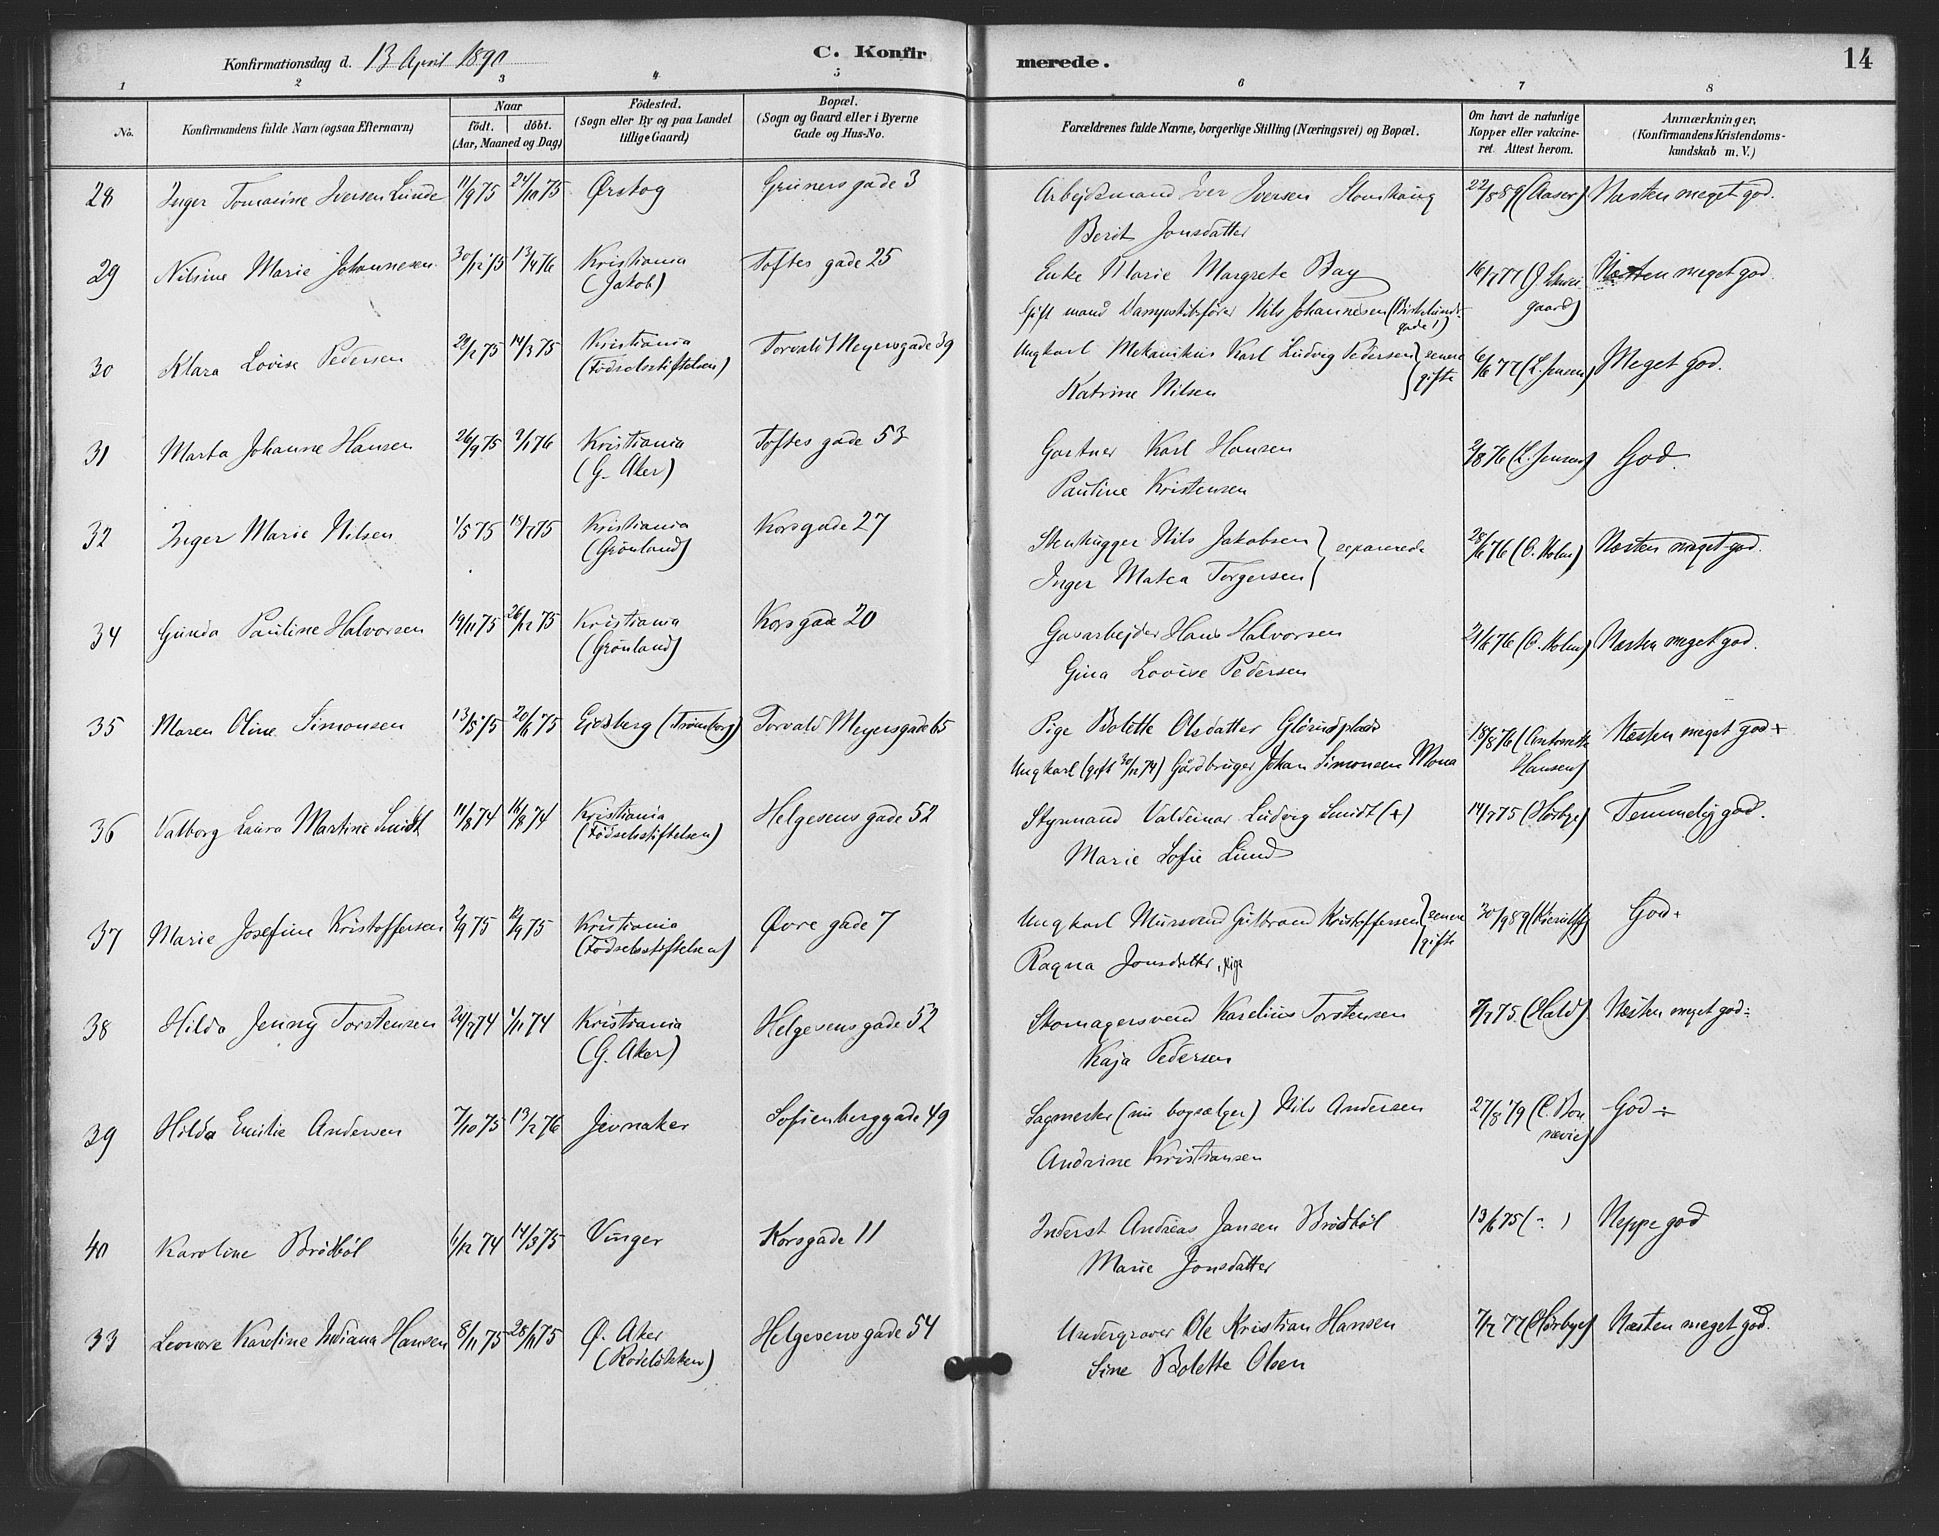 Konfirmationsdag d. 13 April 1890
C. Konfirmerede.
14
1 2 3 4 5 6 7 8
No.
Konfirmandens fulde Navn (ogsaa Efternavn)
Naar
født. døbt.
(Aar, Maaned og Dag)
Födested.
(Sogn eller By og paa Landet
tillige Gaard)
Bopæl.
(Sogn og Gaard eller i Byerne
Gade og Hus-No.
Forældrenes fulde Navne, borgerlige Stilling (Næringsvei) og Bopæl.
Om havt de naturlige
Kopper eller vakcine-
ret. Attest herom.
Anmærkninger,
(Konfirmandens Kristendoms-
kundskab m. V.)
28 Inger Tomasine Iversen Lunde 11/9 75 24/10 75 Ørskog Grünersgade 3 Arbejdsmand Iver Iversen 22/8 89 (Aaser) Næsten meget god.
Berit Jonsdatter
29 Nilsine Marie Johannesen 30/12 75 13/4 76 Kristiania Toftes gade 25 Enke Marie Margrete Bay 16/7 77 Næsten meget god.
(Jakob) gaard)
Gift mand Nils Johannesen
30 Klara Lovise Pedersen 14/3 75 Kristiania Torvald Meyersgade 39 Ungkarl Mekanikus Karl Ludvig Pedersen } senere 6/6 77 (L. Jensen) Meget god.
(Födselsstiftelsen) Katrine Nilsen gifte
31 Marta Johanne Hansen 26/9 75 9/1 76 Kristiania Toftes gade 53 Gartner Karl Hansen 2/8 76 (L. Jensen) God.
(G. Aker) Pauline Kristensen
32 Inger Marie Nilsen 1/5 75 18/7 75 Kristiania Korsgade 27 Stenhugger Nils Jakobsen } separerede 28/6 76 (C. Holm) Næsten meget god.
(Grönland) Inger Matea Torgersen
34 Gunda Pauline Halvorsen 19/11 75 26/12 75 Kristiania Korsgade 20 Gasarbejder Hans Halvorsen 21/6 76 (C. Holm) Næsten meget god.
(Grönland) Gina Lovise Pedersen
35 Maren Oline Simonsen 13/5 75 20/6 75 Ejdsberg (Trömborg) Torvald Meyersgade 65 Pige Bolette Olsdatter 18/8 76 (Antonette Næsten meget god +
Ungkarl (gift 30/12 74) Gårdbruger Johan Simonsen Mona Hansen)
36 Valborg Laura Martine Smidt 11/8 74 16/8 74 Kristiania Helgesens gade 52 Styrmand Valdemar Ludvig Smidt (+) 14/7 75 (Hörbye) Temmelig god.
(Födselsstiftelsen) Marie Sofie Lund
37 Marie Josefine Kristoffersen 2/9 75 12/9 75 Kristiania Øvre gade 7 Ungkarl Mursvend Gulbrand Kristoffersen } senere 30/9 89 God +
(Födselsstiftelsen) Ragna Jonsdatter, pige gifte
38 Hilda Jenny Torstensen 24/7 74 1/11 74 Kristiania Helgesens gade 52 Skomagersvend Karelius Torstensen 7/7 75 (Hald) Næsten meget god ÷
(G. Aker) Kaja Pedersen
39 Hilda Emilie Andersen 7/10 75 13/2 76 Jevnaker Sofienberggade 49 Sagmester (nu bogsælger) Nils Andersen 27/8 79 (C. Bon God ÷
Andrine Kristiansen nevie)
40 Karoline Brödböl 6/12 74 14/3 75 Vinger Korsgade 11 Inderst Andreas Jansen Brödböl 13/6 75 (-) Neppe god
Marie Jonsdatter
33 Leonore Karoline Indiana Hansen 8/11 75 28/11 75 Ø. Aker Helgesens gade 54 Undergraver Ole Kristian Hansen 7/7 77 (Hörbye) Næsten meget god.
(Rodelökken) Sine Bolette Olsen